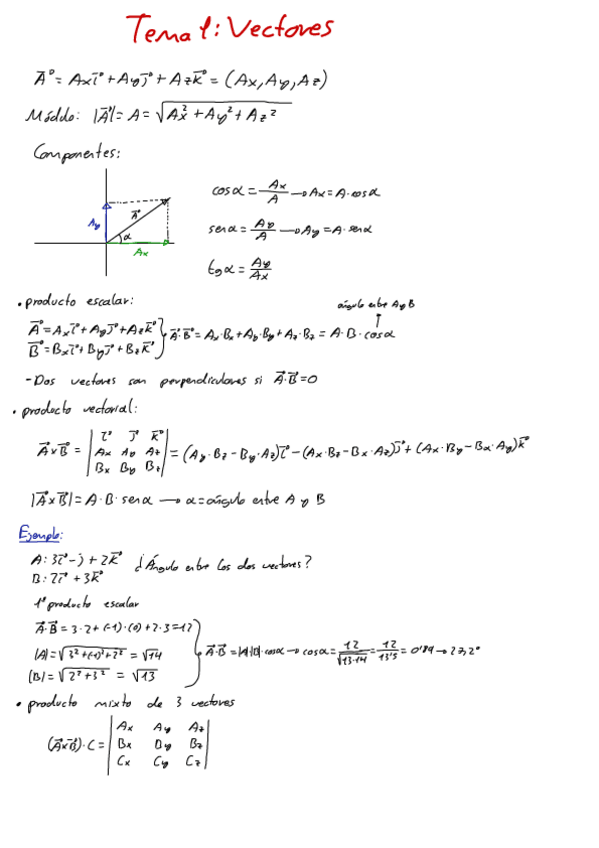 Tema 1: Vectores
A⃗ = Axi⃗ + Ayj⃗ + Azk⃗ = (Ax, Ay, Az)
Módulo: |A⃗| = A = √(Ax² + Ay² + Az²)
Componentes:
cosα = Ax/A → Ax = A·cosα
A⃗
Ay
α
senα = Ay/A → Ay = A·senα
Ax
tgα = Ay/Ax
• producto escalar:
ángulo entre A y B
A⃗ = Axi⃗ + Ayj⃗ + Azk⃗
B⃗ = Bxi⃗ + Byj⃗ + Bzk⃗
A⃗·B⃗ = Ax·Bx + Ay·By + Az·Bz = A·B·cosα
- Dos vectores son perpendiculares si A⃗·B⃗ = 0
• producto vectorial:
i⃗ j⃗ k⃗
A⃗xB⃗ = | Ax Ay Az | = (Ay·Bz - By·Az)i⃗ - (Ax·Bz - Bx·Az)j⃗ + (Ax·By - Bx·Ay)k⃗
Bx By Bz
|A⃗xB⃗| = A·B·senα → α = ángulo entre A y B
Ejemplo:
A: 3i⃗ - j + 2k⃗ ¿Ángulo entre los dos vectores?
B: 2i⃗ + 3k⃗
1º producto escalar
A⃗·B⃗ = 3·2 + (-1)·(0) + 2·3 = 12
|A| = √(3² + (-1)² + 2²) = √14
A⃗·B⃗ = |A|·|B|·cosα → cosα = 12/√(13·14) = 12/13'5 = 0'89 → 27,2°
|B| = √(2² + 3²) = √13
• producto mixto de 3 vectores
Ax Ay Az
(A⃗xB⃗)·C = | Bx By Bz |
Cx Cy Cz